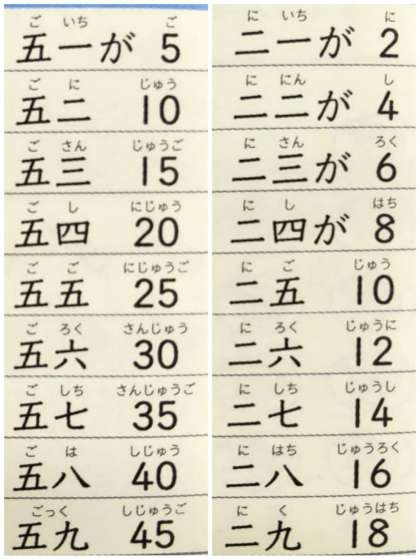 ご いち ご
五一が 5
ご に じゅう
五二 10
ご さん じゅうご
五三 15
ご し にじゅう
五四 20
ご ご にじゅうご
五五 25
ご ろく さんじゅう
五六 30
ご しち さんじゅうご
五七 35
ご は しじゅう
五八 40
ごっく しじゅうご
五九 45
に いち に
二一が 2
に にん し
二二が 4
に さん ろく
二三が 6
に し はち
二四が 8
に ご じゅう
二五 10
に ろく じゅうに
二六 12
に しち じゅうし
二七 14
に はち じゅうろく
二八 16
に く じゅうはち
二九 18